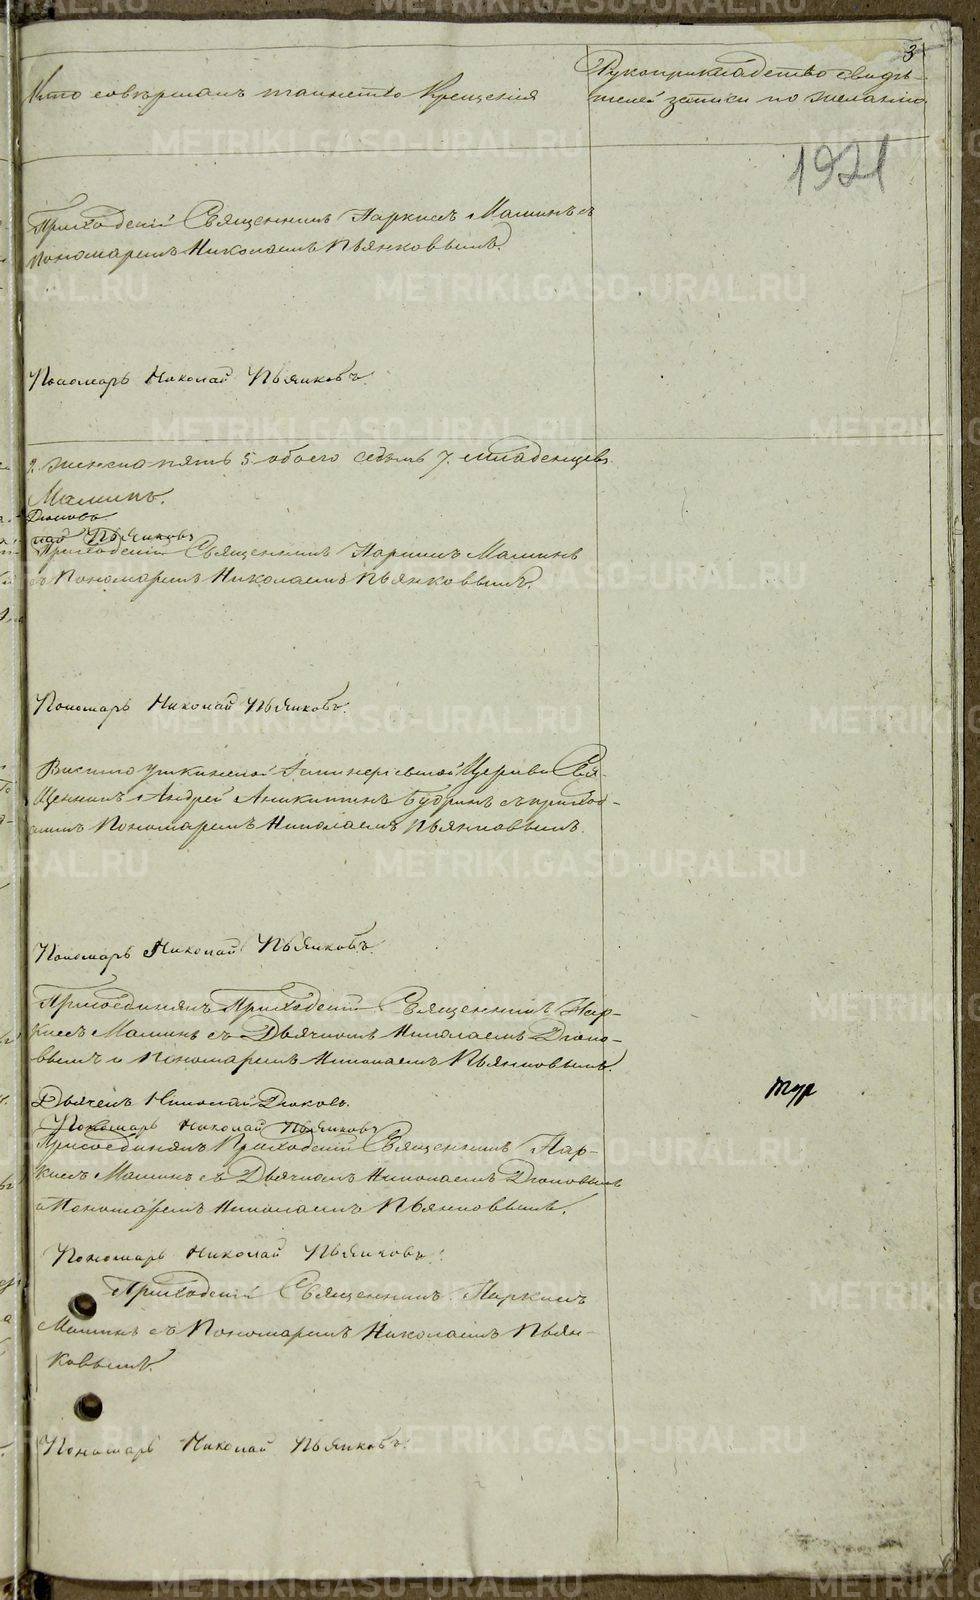 3
Кто совершалъ таинство Крещенія
Рукоприкладство свидѣ-
телей записи по желанію
1921
Приходскій Священникъ Наркисъ Маминъ съ
Пономаремъ Николаемъ Пьянковымъ.
Пономарь Николай Пьянковъ.
2. женска пять 5. обоего седмь 7. младенцевъ.
Маминъ.
Дюковъ.
лай Пьянковъ
Приходскій Священникъ Наркисъ Маминъ
съ Пономаремъ Николаемъ Пьянковымъ.
Пономарь Николай Пьянковъ.
Висимоуткинской Единоверческой Церкви Свя-
щенникъ Андрей Аникитинъ Будринъ съ приход-
скимъ Пономаремъ Николаемъ Пьянковымъ.
Пономарь Николай Пьянковъ.
Присоединялъ Приходскій Священникъ Нар-
кисъ Маминъ съ Дьячкомъ Николаемъ Дюко-
вымъ и Пономаремъ Николаемъ Пьянковымъ.
Дьячекъ Николай Дюковъ.
Пономарь Николай Пьянковъ
Присоединялъ Приходскій Священникъ Нар-
кисъ Маминъ съ Дьячкомъ Николаемъ Дюковымъ
и Пономаремъ Николаемъ Пьянковымъ.
Пономарь Николай Пьянковъ.
Приходскій Священникъ Наркисъ
Маминъ съ Пономаремъ Николаемъ Пьян-
ковымъ.
Пономарь Николай Пьянковъ.
METRIKI.GASO-URAL.RU